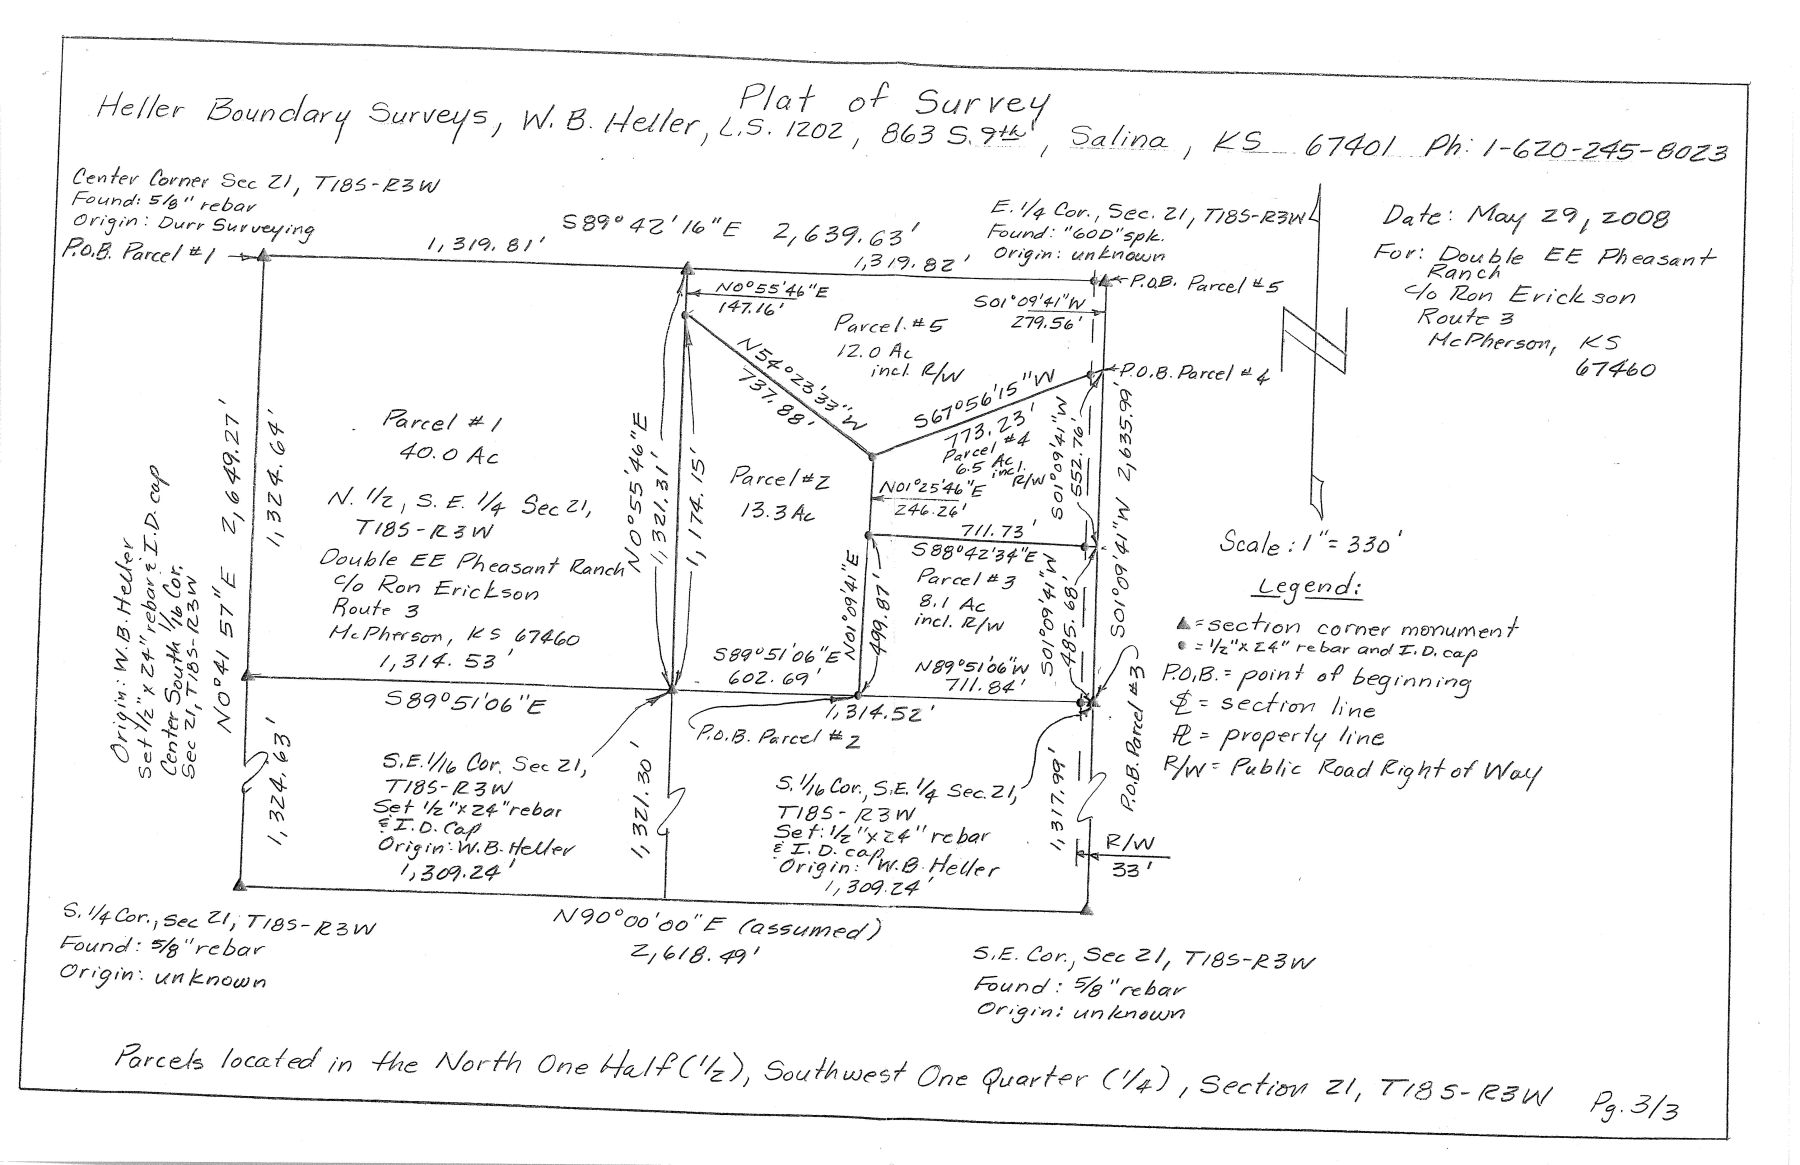 Plat of Survey
Heller Boundary Surveys, W.B. Heller, L.S. 1202, 863 S. 9th, Salina, KS 67401 Ph: 1-620-245-8023
Center Corner Sec 21, T18S-R3W
Found: 5/8" rebar
Origin: Durr Surveying
P.O.B. Parcel #1
S89°42'16"E 2,639.63'
1,319.81'
1,319.82'
E. 1/4 Cor., Sec. 21, T18S-R3W
Found: "60D" spk.
Origin: unknown
P.O.B. Parcel #5
Date: May 29, 2008
For: Double EE Pheasant
Ranch
c/o Ron Erickson
Route 3
McPherson, KS
67460
N0°55'46"E
147.16'
S01°09'41"W
279.56'
Parcel #5
12.0 Ac
incl. R/W
N54°23'33"W
737.88'
S67°56'15"W
773.23'
P.O.B. Parcel #4
Parcel #4
6.5 Ac
incl.
R/W
S01°09'41"W
552.76'
S01°09'41"W 2,635.99'
Parcel #1
40.0 Ac
N. 1/2, S.E. 1/4 Sec 21,
T18S-R3W
Double EE Pheasant Ranch
c/o Ron Erickson
Route 3
McPherson, KS 67460
1,314.53'
S89°51'06"E
N0°41'57"E 2,649.27'
1,324.64'
1,324.63'
N0°55'46"E
1,321.31'
1,174.15'
Parcel #2
13.3 Ac
N01°25'46"E
246.26'
711.73'
S88°42'34"E
Parcel #3
8.1 Ac
incl. R/W
N01°09'41"E
499.87'
S01°09'41"W
485.68'
S89°51'06"E
602.69'
N89°51'06"W
711.84'
1,314.52'
P.O.B. Parcel #2
P.O.B. Parcel #3
Origin: W.B. Heller
Set 1/2"x24" rebar & I.D. cap
Center South 1/16 Cor.
Sec 21, T18S-R3W
S.E. 1/16 Cor. Sec 21,
T18S-R3W
Set 1/2"x24" rebar
& I.D. Cap
Origin: W.B. Heller
1,309.24'
1,321.30'
S. 1/16 Cor., S.E. 1/4 Sec. 21,
T18S-R3W
Set: 1/2"x24" rebar
& I.D. cap
Origin: W.B. Heller
1,309.24'
1,317.99'
R/W
33'
Scale: 1"=330'
Legend:
▲=section corner monument
●=1/2"x24" rebar and I.D. cap
P.O.B.= point of beginning
SL = section line
PL = property line
R/W= Public Road Right of Way
S. 1/4 Cor., Sec 21, T18S-R3W
Found: 5/8" rebar
Origin: unknown
N90°00'00"E (assumed)
2,618.49'
S.E. Cor., Sec 21, T18S-R3W
Found: 5/8" rebar
Origin: unknown
Parcels located in the North One Half (1/2), Southwest One Quarter (1/4), Section 21, T18S-R3W Pg. 3/3